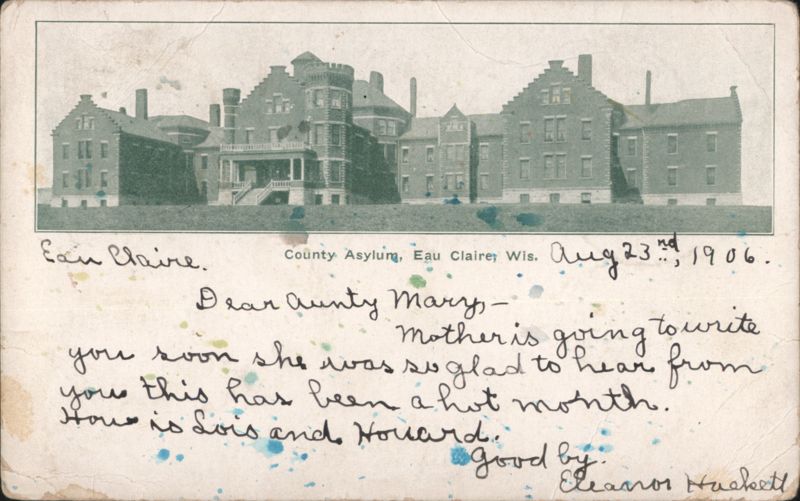 County Asylum, Eau Claire, Wis.
Eau Claire. Aug 23nd, 1906.
Dear Aunty Mary,—
Mother is going to write
you soon she was so glad to hear from
you this has been a hot month.
How is Lois and Houard.
Good by.
Eleanor Hackett